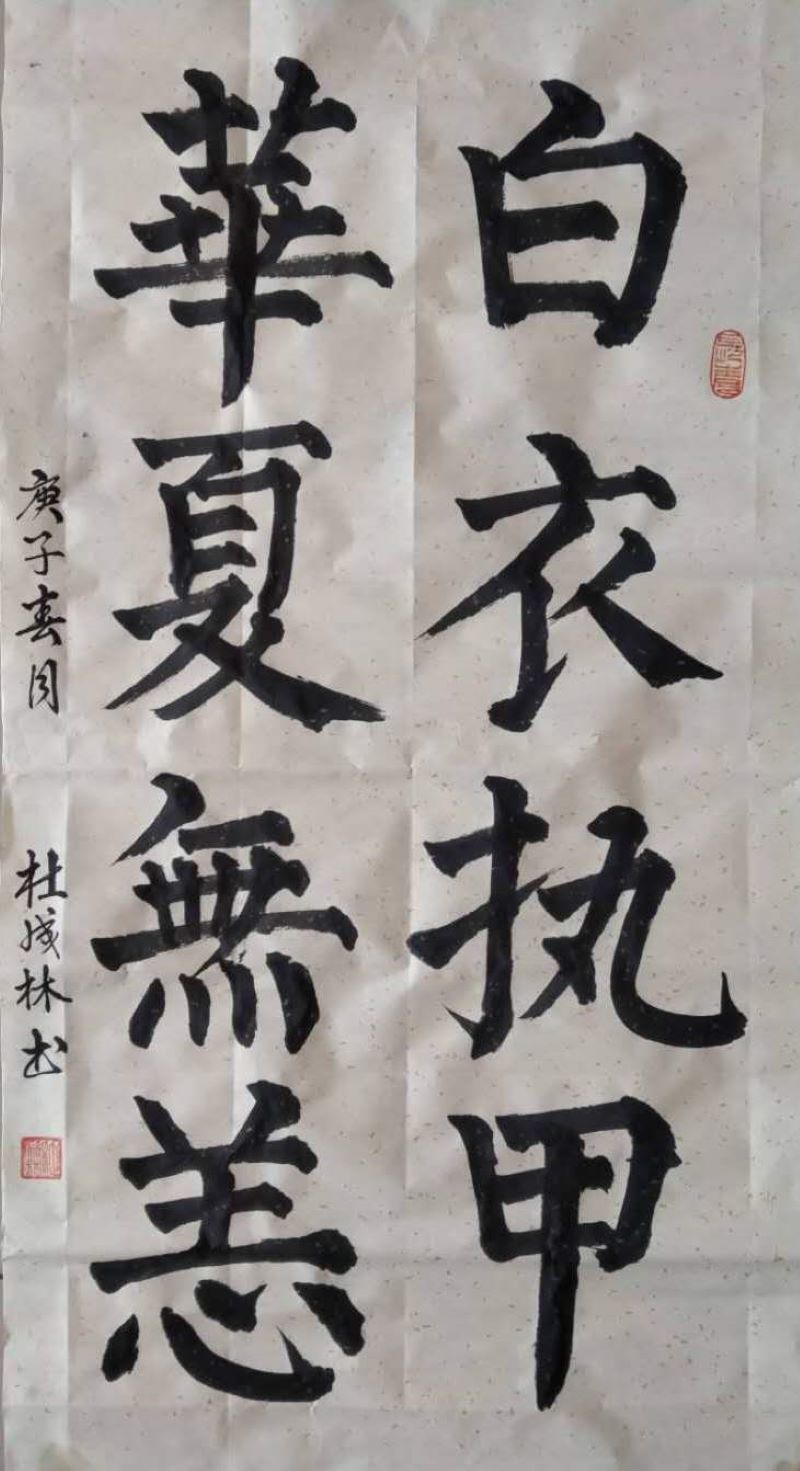 白衣执甲
華夏無恙
庚子春月 杜成林书